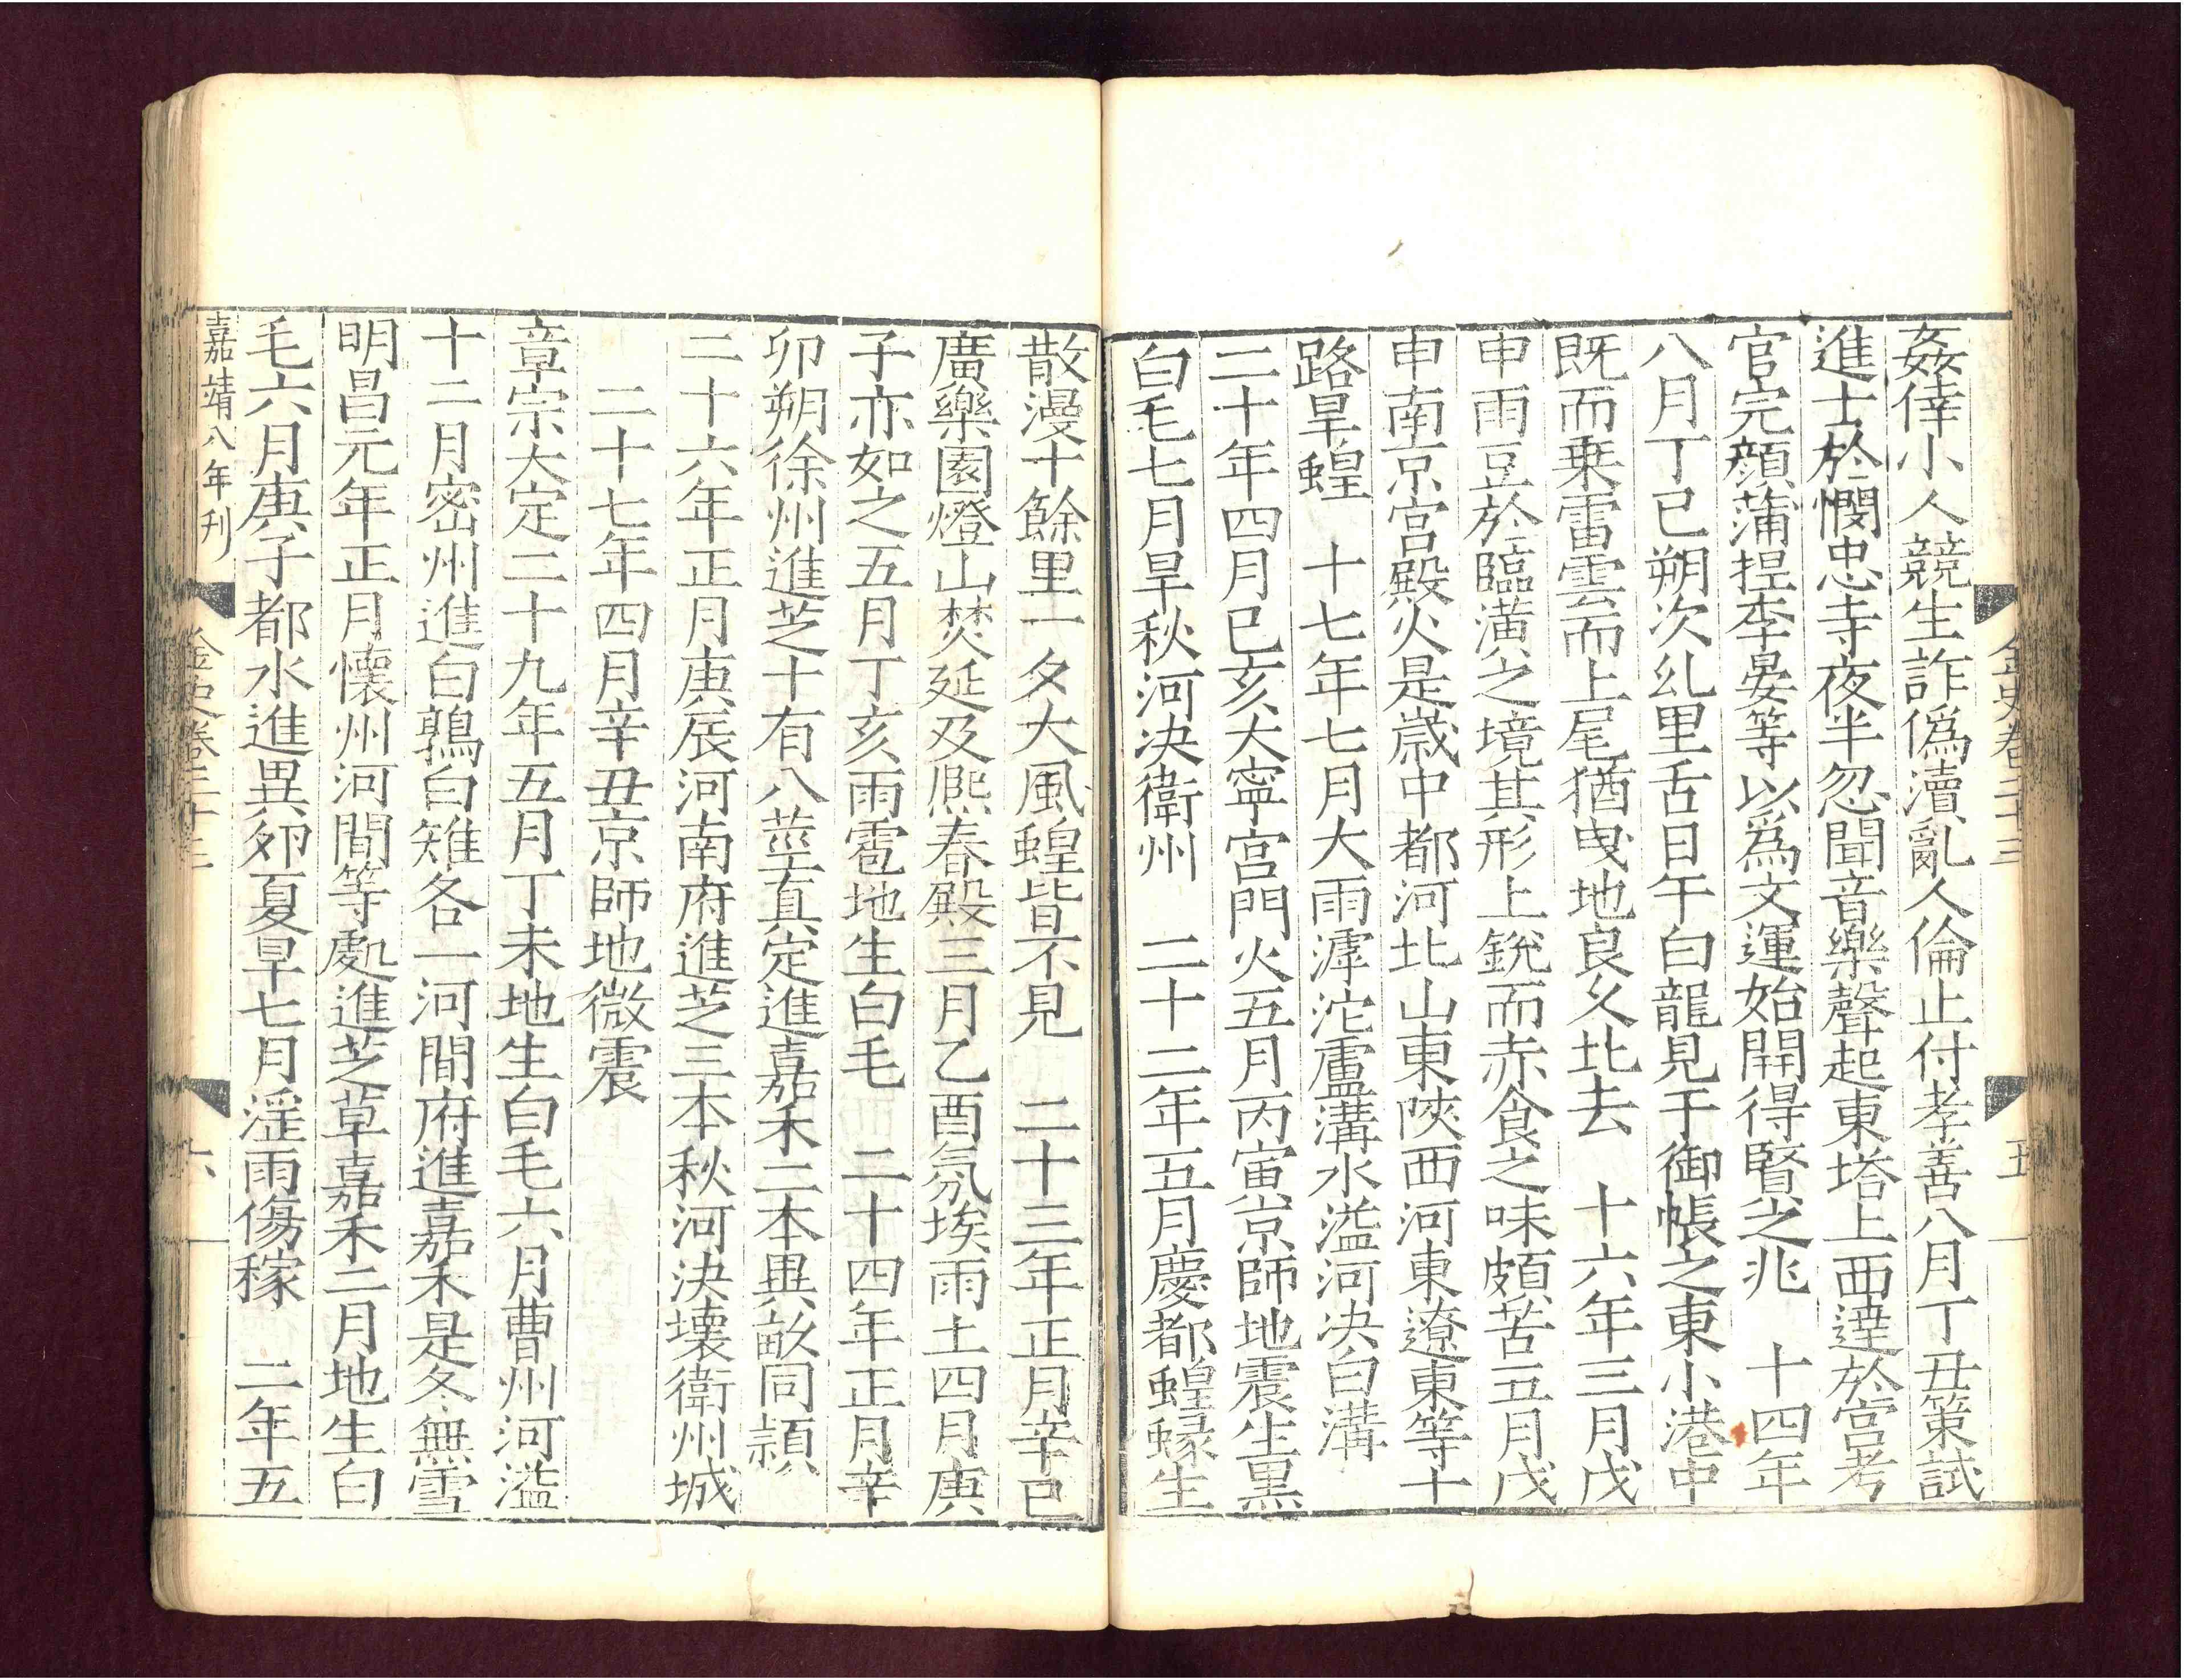 金史卷二十三
五
姦倖小人競生詐僞瀆亂人倫止付孝善八月丁丑策試
進士於憫忠寺夜半忽聞音樂聲起東塔上西達於宮考
官完顏蒲捏李晏等以爲文運始開得賢之兆　十四年
八月丁巳朔次乣里舌日午白龍見于御帳之東小港中
既而乗雷雲而上尾猶曳地良久北去　十六年三月戊
申雨豆於臨潢之境其形上銳而赤食之味頗苦五月戊
申南京宮殿火是歲中都河北山東陝西河東遼東等十
路旱蝗　十七年七月大雨滹沱盧溝水溢河决白溝
二十年四月己亥大寧宮門火五月丙寅京師地震生黒
白毛七月旱秋河决衛州　二十二年五月慶都蝗蝝生
散漫十餘里一夕大風蝗皆不見　二十三年正月辛巳
廣樂園燈山焚延及熈春殿三月乙酉氛埃雨土四月庚
子亦如之五月丁亥雨雹地生白毛　二十四年正月辛
卯朔徐州進芝十有八莖真定進嘉禾二本異畝同頴
二十六年正月庚辰河南府進芝三本秋河决壞衛州城
二十七年四月辛丑京師地微震
章宗大定二十九年五月丁未地生白毛六月曹州河溢
十二月密州進白鶉白雉各一河間府進嘉禾是冬無雪
明昌元年正月懷州河間等處進芝草嘉禾二月地生白
毛六月庚子都水進異卵夏旱七月淫雨傷稼　二年五
嘉靖八年刊
金史卷二十三
六